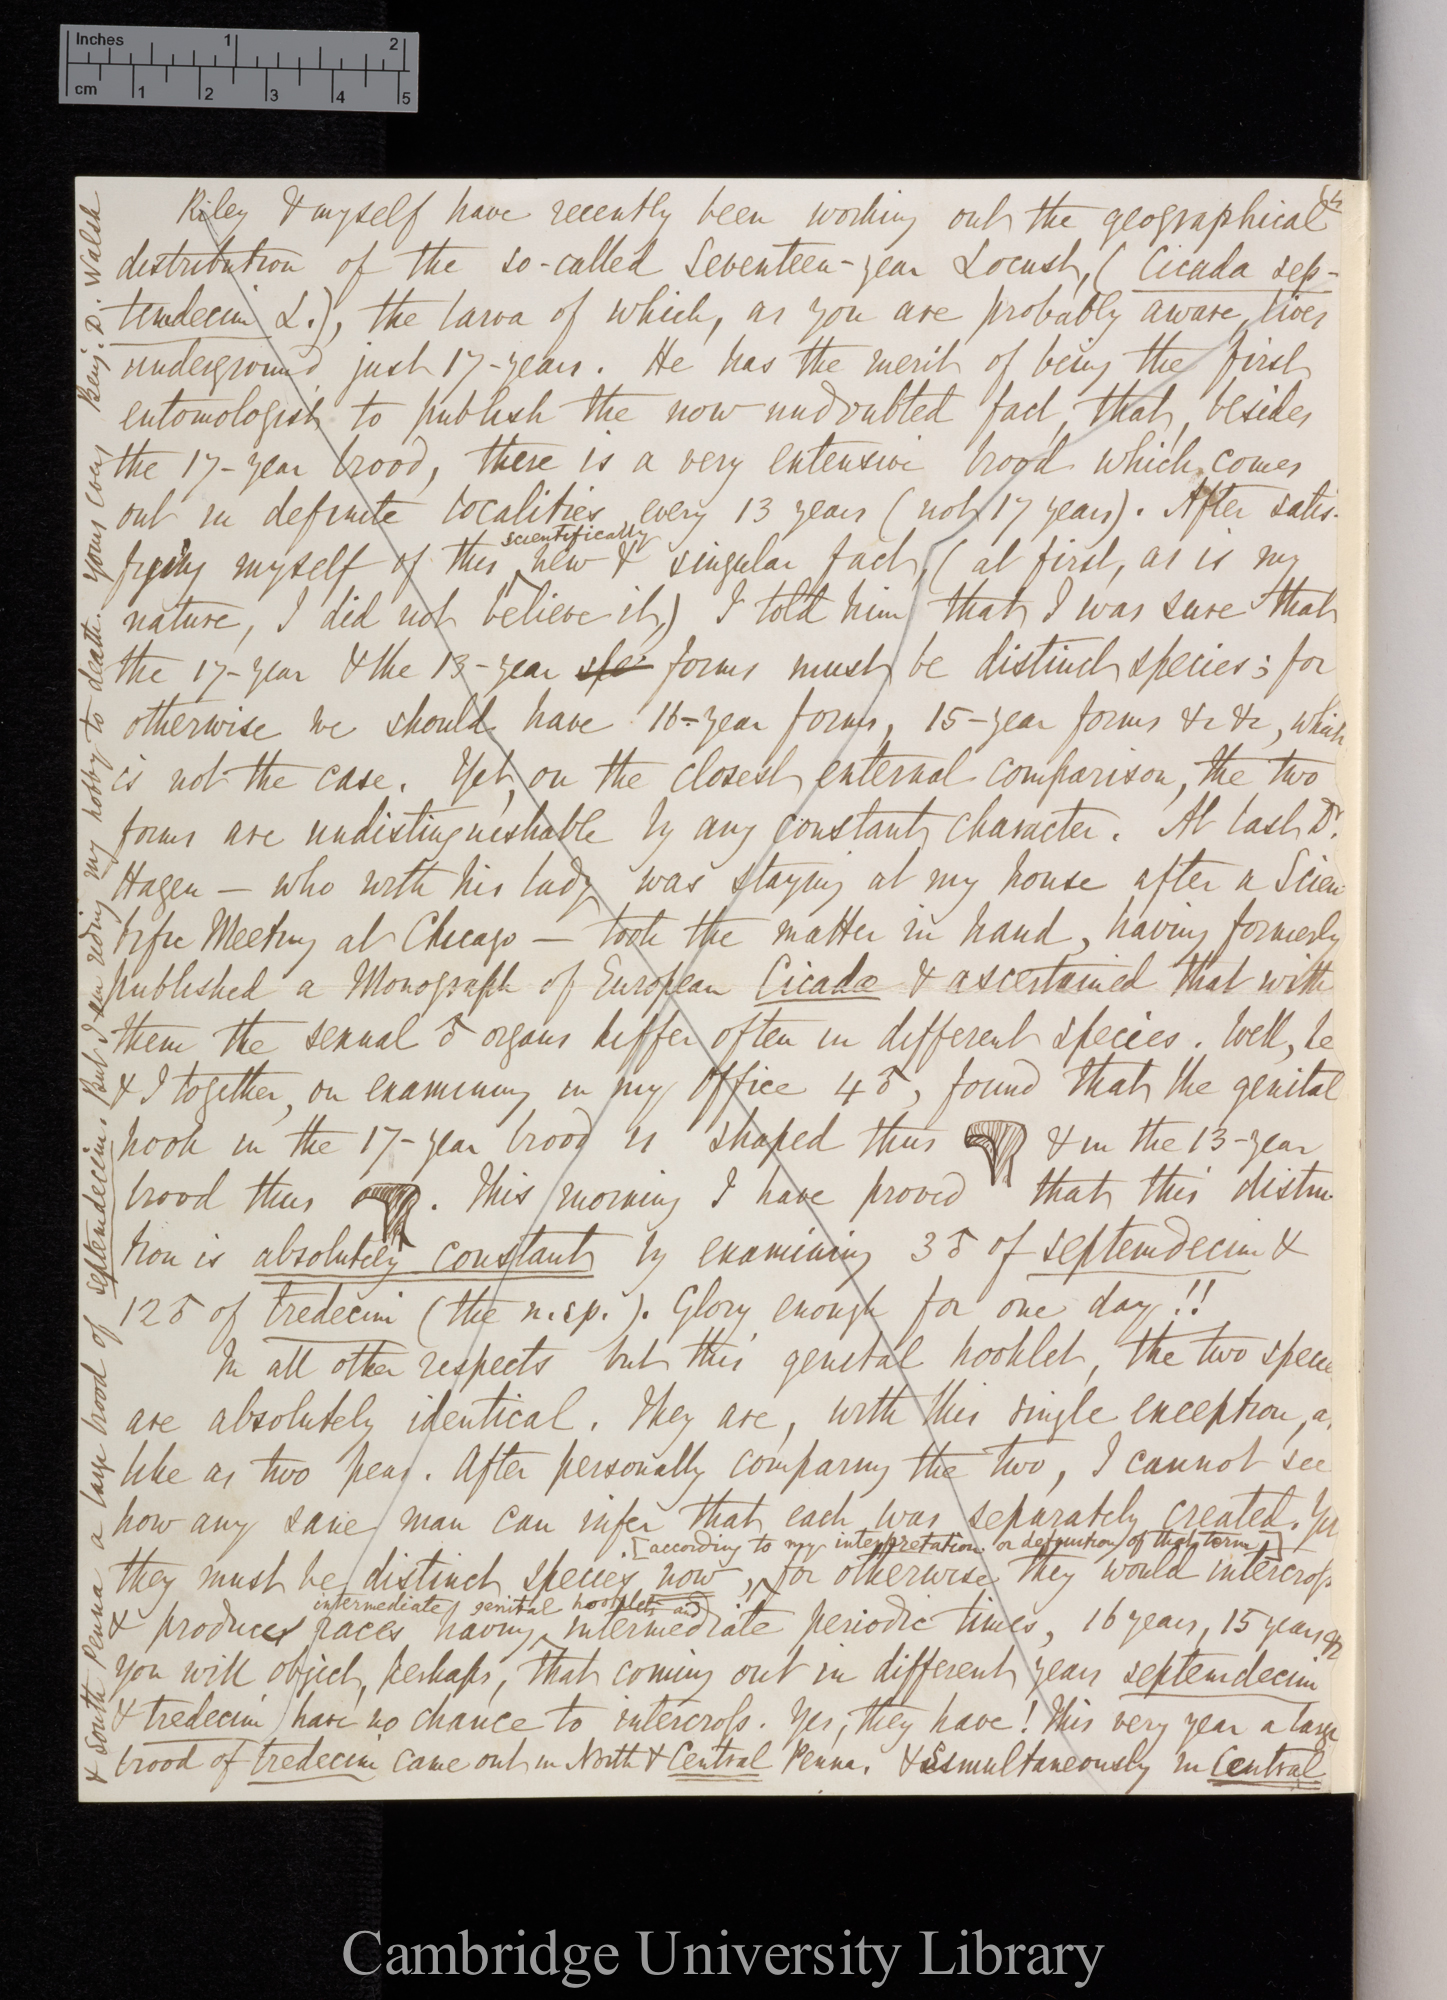 Inches 1 2
cm 1 2 3 4 5
Riley & myself have recently been working out the geographical
distribution of the so-called Seventeen-year Locust, (Cicada sep-
temdecim L.), the larva of which, as you are probably aware, lives
underground just 17-years. He has the merit of being the first
entomologist to publish the now undoubted fact, that, besides
the 17-year brood, there is a very extensive brood which comes
out in definite localities every 13 years (not 17 years). After satis-
scientifically
fying myself of this new & singular fact, (at first, as is my
nature, I did not believe it,) I told him that I was sure that
the 17-year & the 13-year spe forms must be distinct species; for
otherwise we should have 16-year forms, 15-year forms &c &c, which
is not the case. Yet, on the closest external comparison, the two
forms are undistinguishable by any constant character. At last Dr.
Hagen — who with his lady was staying at my house after a Scien
tific Meeting at Chicago — took the matter in hand, having formerly
published a Monograph of European Cicadæ & ascertained that with
them the sexual ♂ organs differ often in different species. Well, he
& I together, on examining in my office 4 ♂, found that the genital
hook in the 17-year brood is shaped thus & in the 13-year
brood thus . This morning I have proved that this distinc-
tion is absolutely constant by examining 3 ♂ of septemdecim &
12 ♂ of tredecim (the n.sp.). Glory enough for one day!!
In all other respects but this genital hooklet, the two specie
are absolutely identical. They are, with this single exception, as
like as two peas. After personally comparing the two, I cannot see
how any sane man can infer that each was separately created. Yet
[according to my interpretation or definition of that term]
they must be distinct species now, for otherwise they would intercross
intermediate genital hooklets and
& produce races having intermediate periodic times, 16 years, 15 years &c
You will object, perhaps, that coming out in different years septemdecim
& tredecim have no chance to intercross. Yes, they have! This very year a large
brood of tredecim came out in North & Central Penna. & simultaneously in Central
& South Penna a large brood of septemdecim. But I am riding my hobby to death. Yours ever Benj. D. Walsh
Cambridge University Library